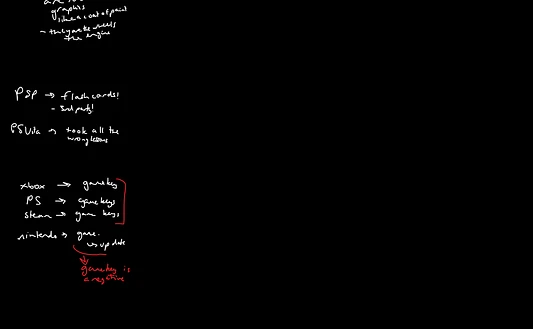 graphics
like a coat of paint
- they are the wheels
the engine
PSP → flashcards!
- 3rd party!
PSVita → took all the
wrong lessons
xbox → gamekey
PS → gamekeys
steam → game keys
nintendo → game.
↳ update
gamekey is
a negative